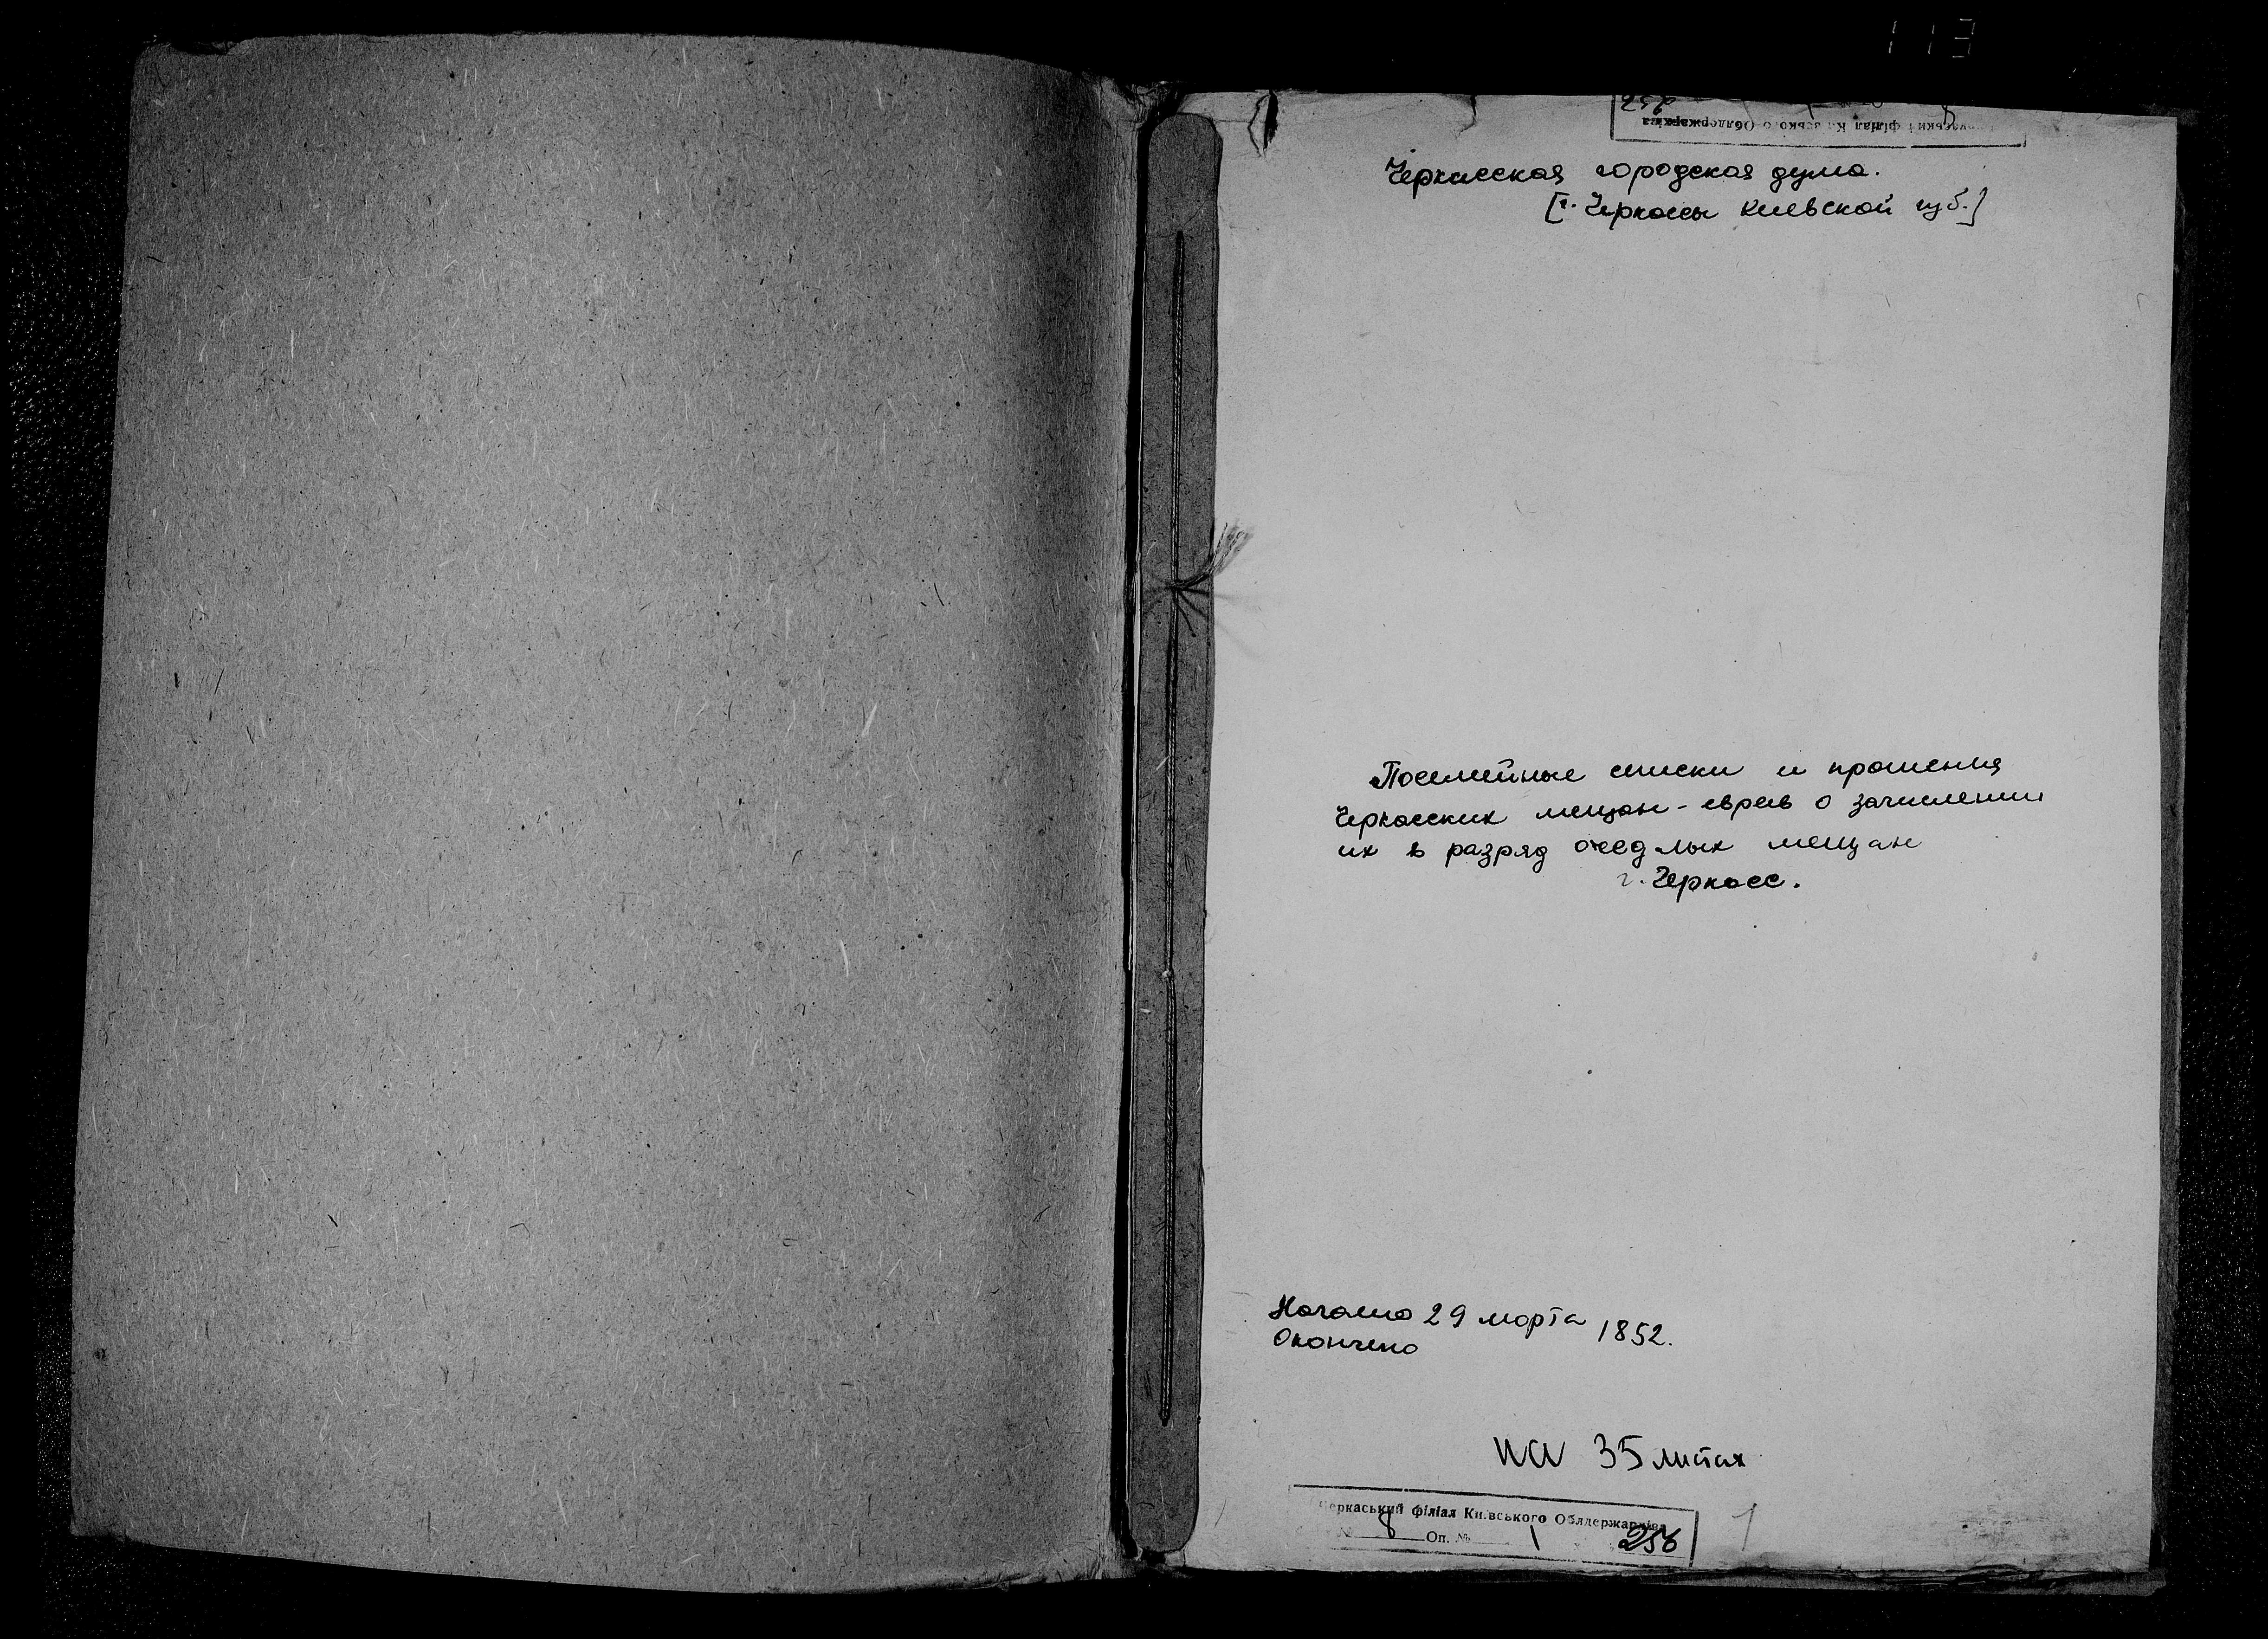 113
Черкасская городская дума.
[г. Черкассы Киевской губ.]
Посемейные списки и прошения
Черкасских мещан-евреев о зачислении
их в разряд оседлых мещан
г. Черкасс.
Начато 29 марта 1852.
Окончено
на 35 листах
Черкаський філіал Київського Облдержархіва
№ 8 Оп. № 1 256
1